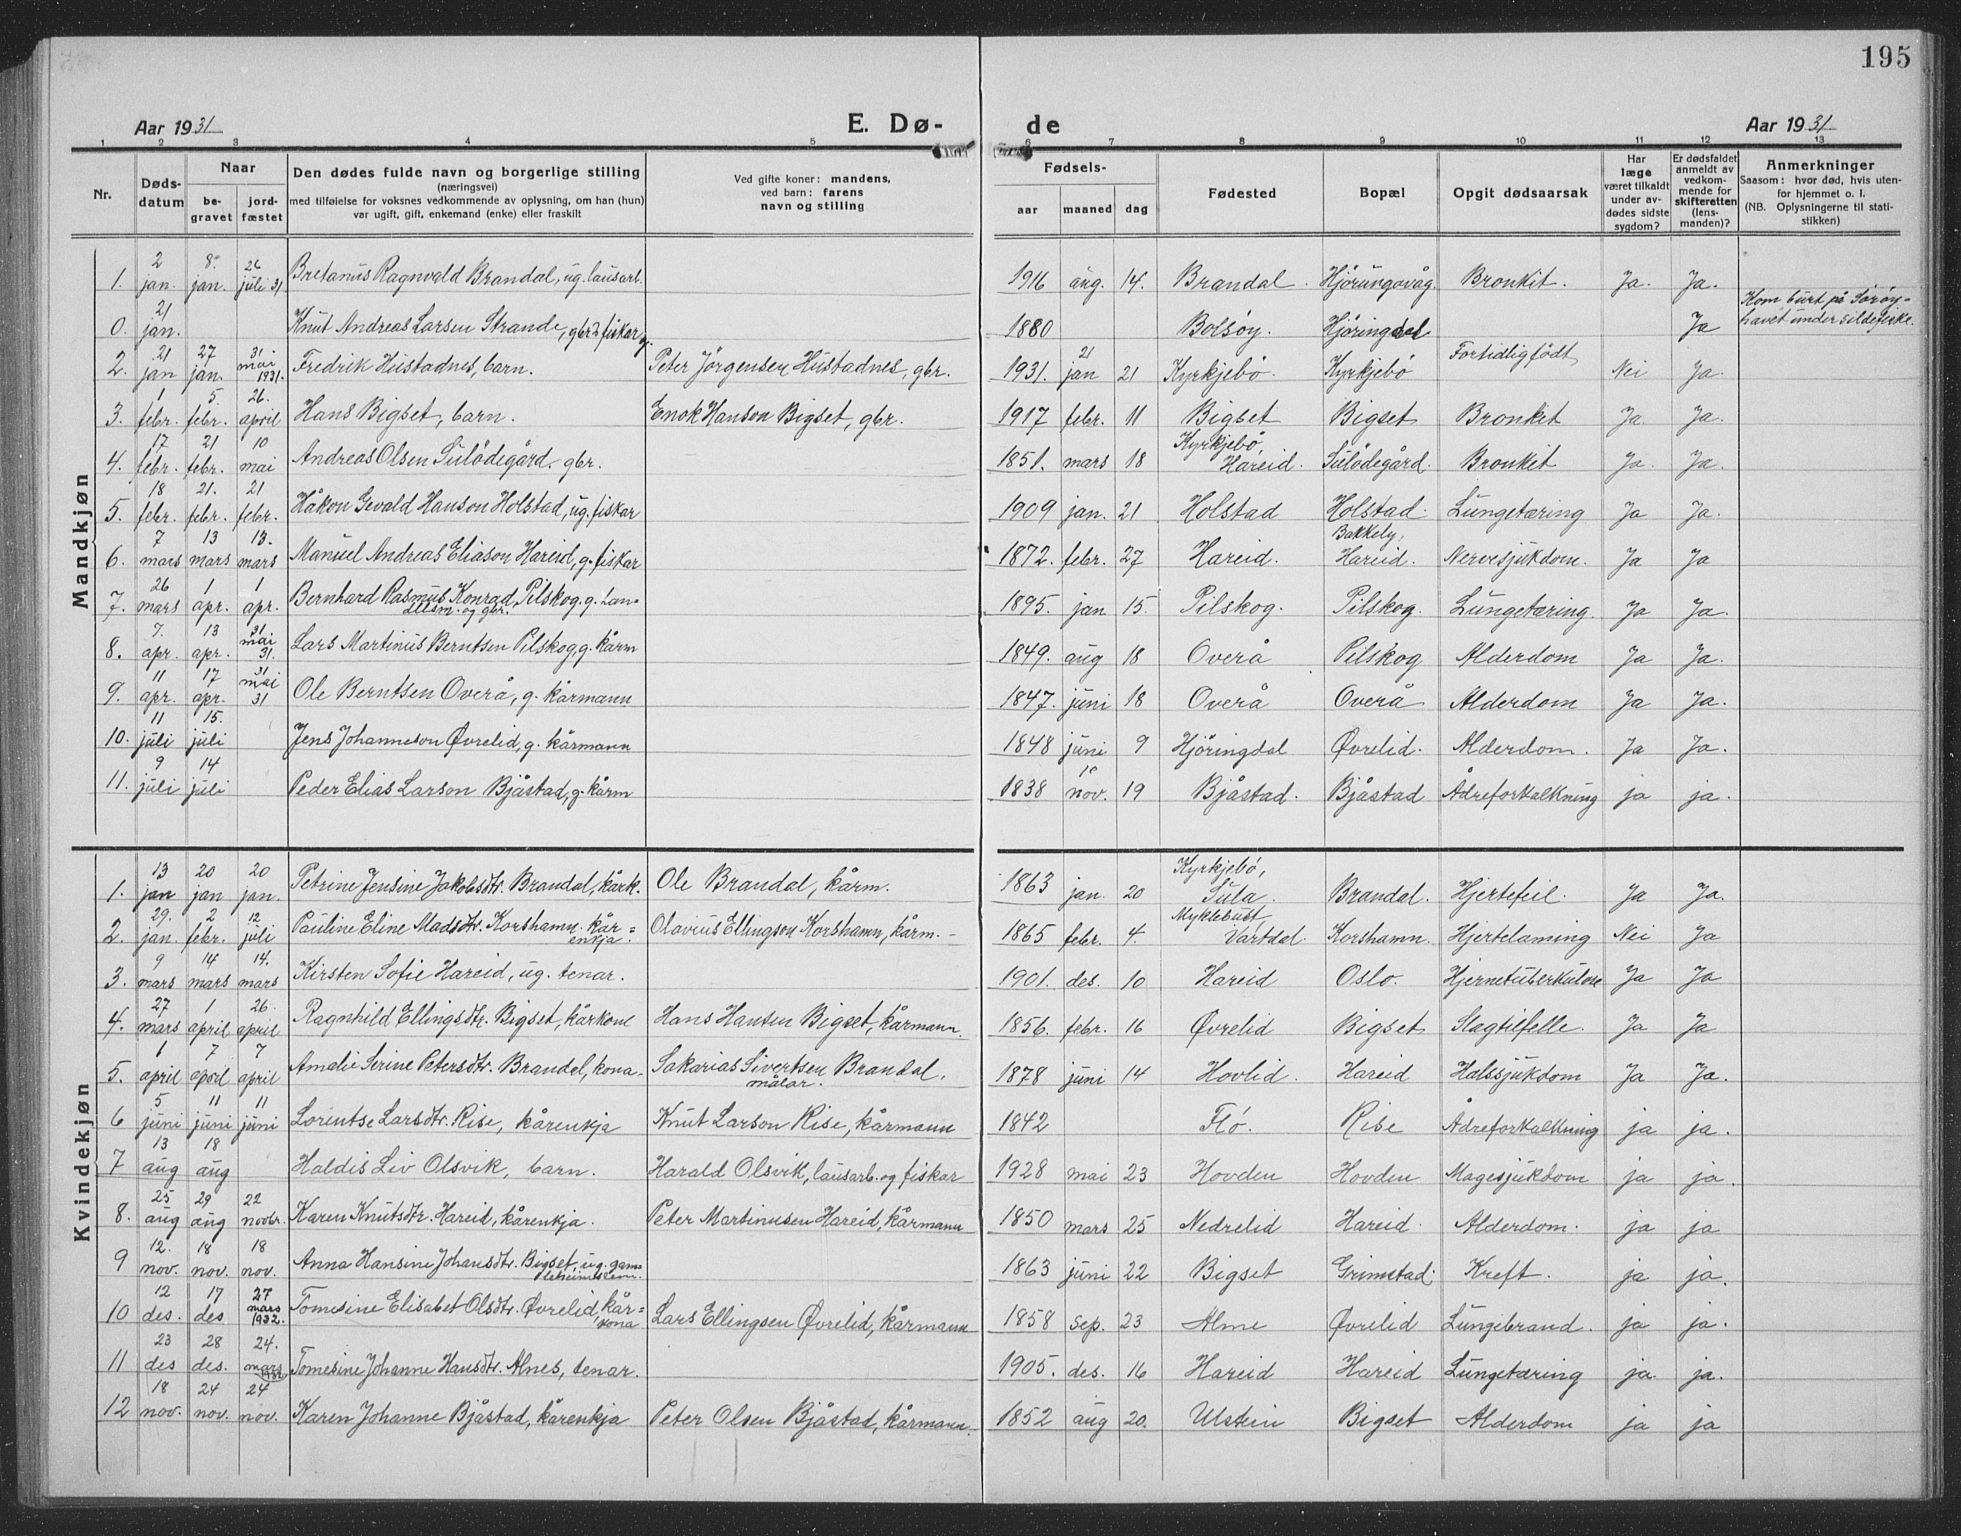 195
Aar 1931
E. Dø-
de
Aar 1931
1 2 3 4 5 6 7 8 9 10 11 12 13
Nr.
Døds-
datum
Naar
be-
gravet
jord-
fæstet
Den dødes fulde navn og borgerlige stilling
(næringsvei)
med tilføielse for voksnes vedkommende av oplysning, om han (hun)
var ugift, gift, enkemand (enke) eller fraskilt
Ved gifte koner: mandens,
ved barn: farens
navn og stilling
Fødsels-
aar maaned dag
Fødested
Bopæl
Opgit dødsaarsak
Har
læge
været tilkaldt
under av-
dødes sidste
sygdom?
Er dødsfaldet
anmeldt av
vedkom-
mende for
skifteretten
(lens-
manden)?
Anmerkninger
Saasom: hvor død, hvis uten-
for hjemmet o. l.
(NB. Oplysningerne til stati-
stikken)
Mandkjøn
1. 2 jan. 8. jan. 26 juli 31 Bretanus Ragnvald Brandal, ug. lausarb. 1916 aug. 14. Brandal. Hjørungavåg. Bronkit. Ja. Ja.
0. 21 jan. Knut Andreas Larsen Strande, gbr. & fiskar g. 1880 Bolsøy. Hjøringdal Ja Kom burt på Sørøy-
havet under sildefiske.
2. 21 jan 27 jan. 31 mai 1931. Fredrik Hustadnes, barn. Peter Jørgensen Hustadnes, gbr. 1931. 21 jan 21 Kyrkjebø. Kyrkjebø Fortidlig født Nei Ja.
3. 1 febr. 5. febr. 26. april Hans Bigset, barn. Enok Hanson Bigset, gbr. 1917 febr. 11 Bigset Bigset Bronkit Ja. Ja.
4. 17 febr. 21 febr. 10 mai Andreas Olsen Sulødegård. gbr. 1851. mars 18 Kyrkjebø, Hareid. Sulødegård. Bronkit Ja. Ja.
5. 18 febr. 21. febr. 21 febr. Håkon Gevald Hanson Holstad, ug. fiskar 1909 jan. 21 Holstad Holstad. Lungetæring Ja Ja.
6. 7 mars 13 mars 13. mars Manuel Andreas Eliason Hareid, g. fiskar 1872. febr. 27 Hareid. Bakkely, Hareid. Nervesjukdom. Ja Ja
7. 26 mars 1 apr. 1 apr. Bernhard Rasmus Konrad Pilskog, g. han-
delsm. og gbr. 1895. jan 15. Pilskog. Pilskog. Lungetæring. Ja Ja.
8. 7. apr. 13 apr. 31 mai 31. Lars Martinus Berntsen Pilskog, g. kårm 1849. aug 18 Overå Pilskog Alderdom Ja Ja.
9. 11 apr. 17 apr. 31 mai 31 Ole Berntsen Overå, g. kårmann 1847. juni 18 Overå Overå Alderdom Ja Ja.
10. 11 juli 15. juli Jens Johanneson Øvrelid, g. kårmann 1848 juni 9 Hjøringdal Øvrelid. Alderdom. Ja Ja.
11. 9 juli 14 juli Peder Elias Larson Bjåstad, g. kårm 1838 10 nov. 19 Bjåstad. Bjåstad Ådreforkalkning ja ja.
Kvindekjøn
1. 13 jan 20 jan 20 jan. Petrine Jensine Jakobsdtr. Brandal, kårk. Ole Brandal, kårm. 1863 jan. 20 Kyrkjebø, Sula. Brandal. Hjertefeil. Ja Ja.
2. 29. jan. 2 febr. 12 juli Pauline Eline Madsdtr. Korshamn. kår=
enkja. Olavius Ellingsen Korshamn, kårm. - 1865 febr. 4. Myklebust, Vartdal. Korshamn. Hjertelaming Nei Ja
3. 9 mars 14 mars 14. mars Kirsten Sofie Hareid, ug. tenar. 1901. des. 10 Hareid Oslo. Hjernetuberkulose Ja Ja
4. 27 mars 1 april 26. april Ragnhild Ellingsdtr. Bigset, kårkone Hans Hansen Bigset, kårmann. 1856. febr. 16 Øvrelid Bigset Slagtilfelle. Ja Ja
5. 1 april 7 april 7 april Amalie Serine Petersdtr. Brandal, kona- Sakarias Sivertsen Brandal,
målar. 1878 juni 14 Hovlid. Hareid Halssjukdom Ja Ja.
6 5 juni 11 juni 11 juni Lorentse Larsdtr. Rise, kårenkja Knut Larson Rise, kårmann 1842 Flø. Rise Ådreforkalkning ja ja.
7 13 aug 18 aug Haldis Liv Olsvik, barn. Harald Olsvik, lausarb. og fiskar 1928 mai 23 Hovden Hovden Magesjukdom ja ja.
8. 25 aug 29 aug 22 novbr. Karen Knutsdtr. Hareid, kårenkja. Peter Martinusen Hareid, kårmann 1850 mars 25 Nedrelid Hareid. Alderdom. ja ja
9 12. nov. 18 nov. 18 nov. Anna Hansine Johansdtr. Bigset, ug. gam=
leheimslem. 1863 juni 22 Bigset Grimstad. Kreft. ja ja.
10 12 des. 17 des 27 mars 1932. Tomesine Elisabet Olsdtr. Øvrelid, kår=
kona Lars Ellingsen Øvrelid, kårmann 1858 sep. 23 Alme Øvrelid Lungebrand. ja ja.
11 23 des 28 des. 24. mars 1932 Tomesine Johanne Hansdtr. Alnes, tenar. 1905. des. 16 Hareid Hareid Lungetæring ja. ja.
12 18 nov. 24 nov. 24 nov. Karen Johanne Bjåstad, kårenkja Peter Olsen Bjåstad, kårmann. 1852 aug 20. Ulstein Bigset Alderdom ja ja